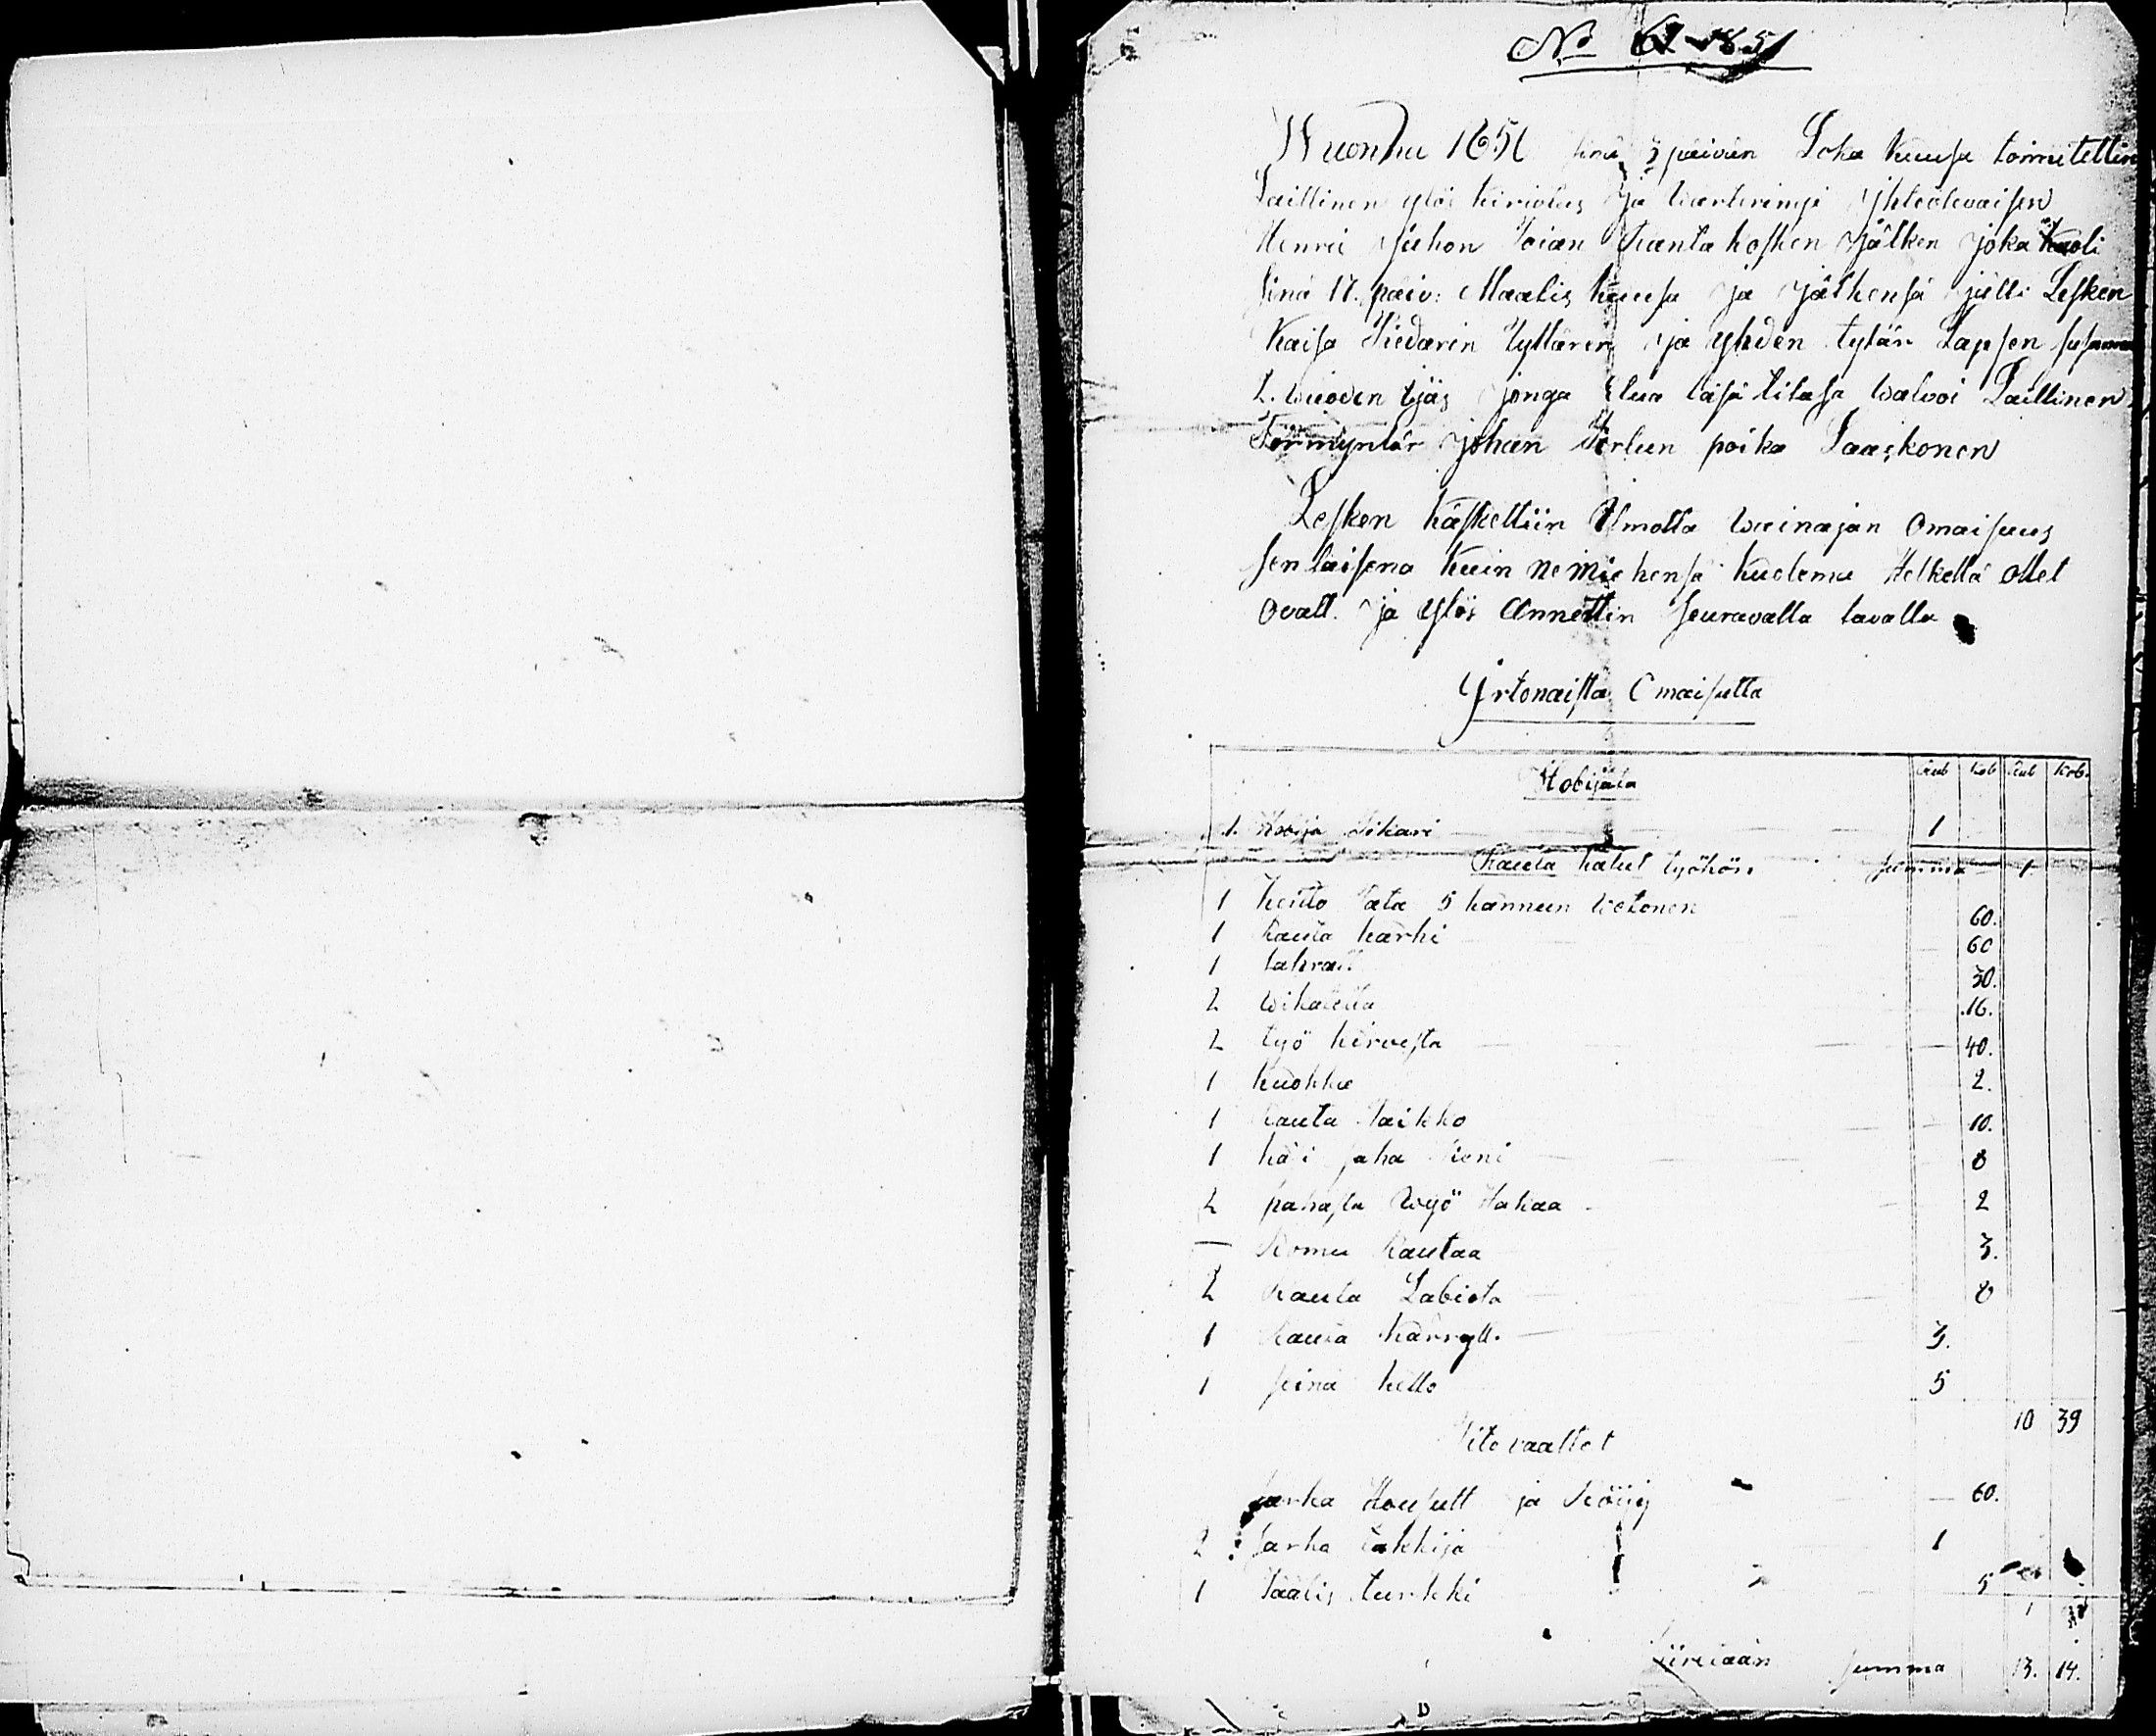 No 61 1851
Wuonna 1851 sinä 3 päivän Loka kuusa toimitettin
Laillinen ylös kirioitus ja wärteringi yhteolevaisen
Henrik Juhon Poian Rantakosken jälken joka kuoli
sinä 17. päiv: Maalis kuusa ja jälkensä jätti Lesken
Kaisa Pedarin Tyttären ja yhden tytär Lapsen
2. wuoden Jäs jonga tilasa walwoi Laillinen
Förmyntär Johan poika Saaskonen
Lesken käskettiin Ilmotta wainajan Omaisuus
senlaisena kuin ne miehensä kuolema Hetkellä ollet
Ovatt. ja ylös Annettin seuravalla tavalla
Yrtonaista Omaisutta
Rub Kob Rub Kob.
Hobijata
1. sikari 1
Rauta kalut työhön summa 1
1 keito Pata 5 kannun wetonen 60.
1 Rauta karhi 60
1 30.
2 wikatetta 16.
2 työ kirvesta 40.
1 kuokka 2.
1 Rauta 10.
1 käsi saha pieni 8
2 pahasta wyö Hakaa 2
— Romu Rautaa 3.
2 Rauta Labiota 8
1 Rauta kärryt. 3.
1 seinä kello 5
10 39
Pito vaattet
sarka Housutt ja Röijy 60.
2 sarka 1
1 turkki 5
1
Siiretään summa 13. 14.